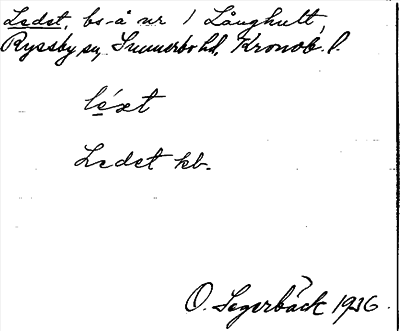 Ledet, bs-å nr 1 Långhult,
Ryssby sn, Sunnerbo hd, Kronob. l.
léxt
Ledet kb.
O. Segerbäck 1936